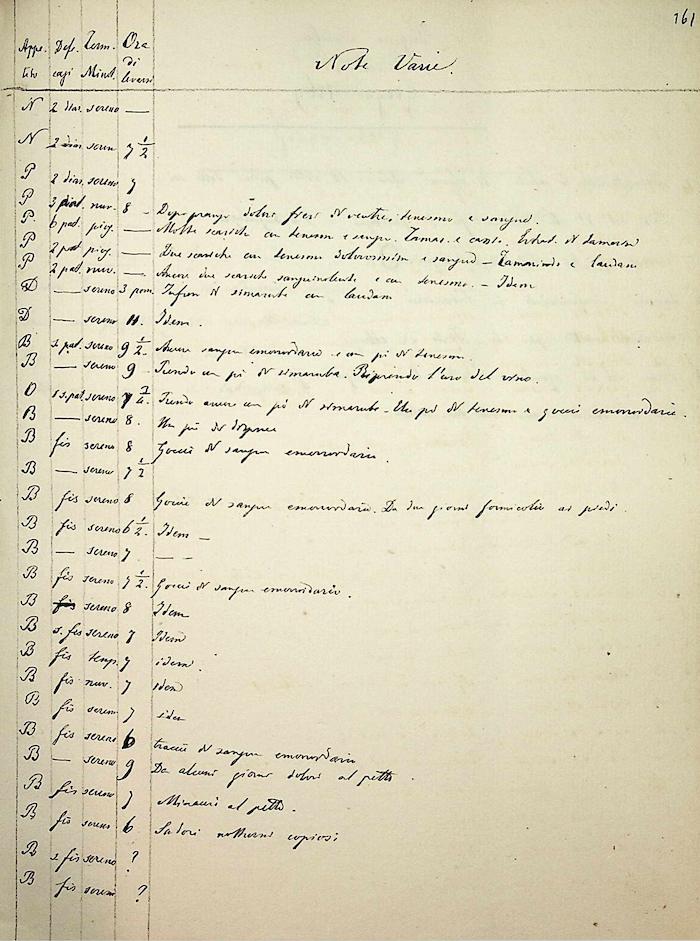 161
Appe- Defe- Term. Ora
tito cazi Minst. di
levarsi
Note Varie.
N 2 diar. sereno —
N 2 diar. seren 7 1/2
P 2 diar. sereno 7
P 3 diar. nuv. 8 - Dopo pranzo dolori fieri di ventre, tenesmo e sangue.
P. 6 pat. piog. — Molte scariche con tenesmo e sangue. Tamar. e cassia.
P 2 pat piog. — Due scariche con tenesmo dolorosissimo e sangue - Tamarindo e laudam
P 2 pat. nuv. — Ancora due scariche sanguinolente e con tenesmo. - Idem
D — sereno 3 pom. Infuso di simaruba con laudam
D — sereno 11. Idem.
B s. pat. sereno 9 1/2. Ancora sangue emorroidario e un pò di tenesmo.
B — sereno 9 Prendo un pò di simaruba. Riprendo l'uso del vino.
O 1 s. pat. sereno 7 Prendo ancora un pò di simaruba - Un pò di tenesmo e goccie emorroidarie.
B — sereno 8. Un pò di
B fis sereno 8 Goccie di sangue emorroidario.
B — sereno 7 1/2
B fis sereno 8 Goccie di sangue emorroidario. Da due giorni formicolio ai piedi.
B fis sereno 6 1/2. Idem —
B — sereno 7 — —
B fis sereno 7 1/2. Goccie di sangue emorroidario.
B fis sereno 8 Idem
B s. fis sereno 7 Idem
B fis temp. 7 idem.
B fis nuv. 7 idem
B fis seren 7 idem
B fis sereno 6 traccie di sangue emorroidario
B — sereno 9 Da alcuni giorni dolori al petto.
B fis sereno 7 Minacci al petto.
B fis sereno 6 Sudori notturni copiosi
B s fis sereno ?
B fis sereno ?